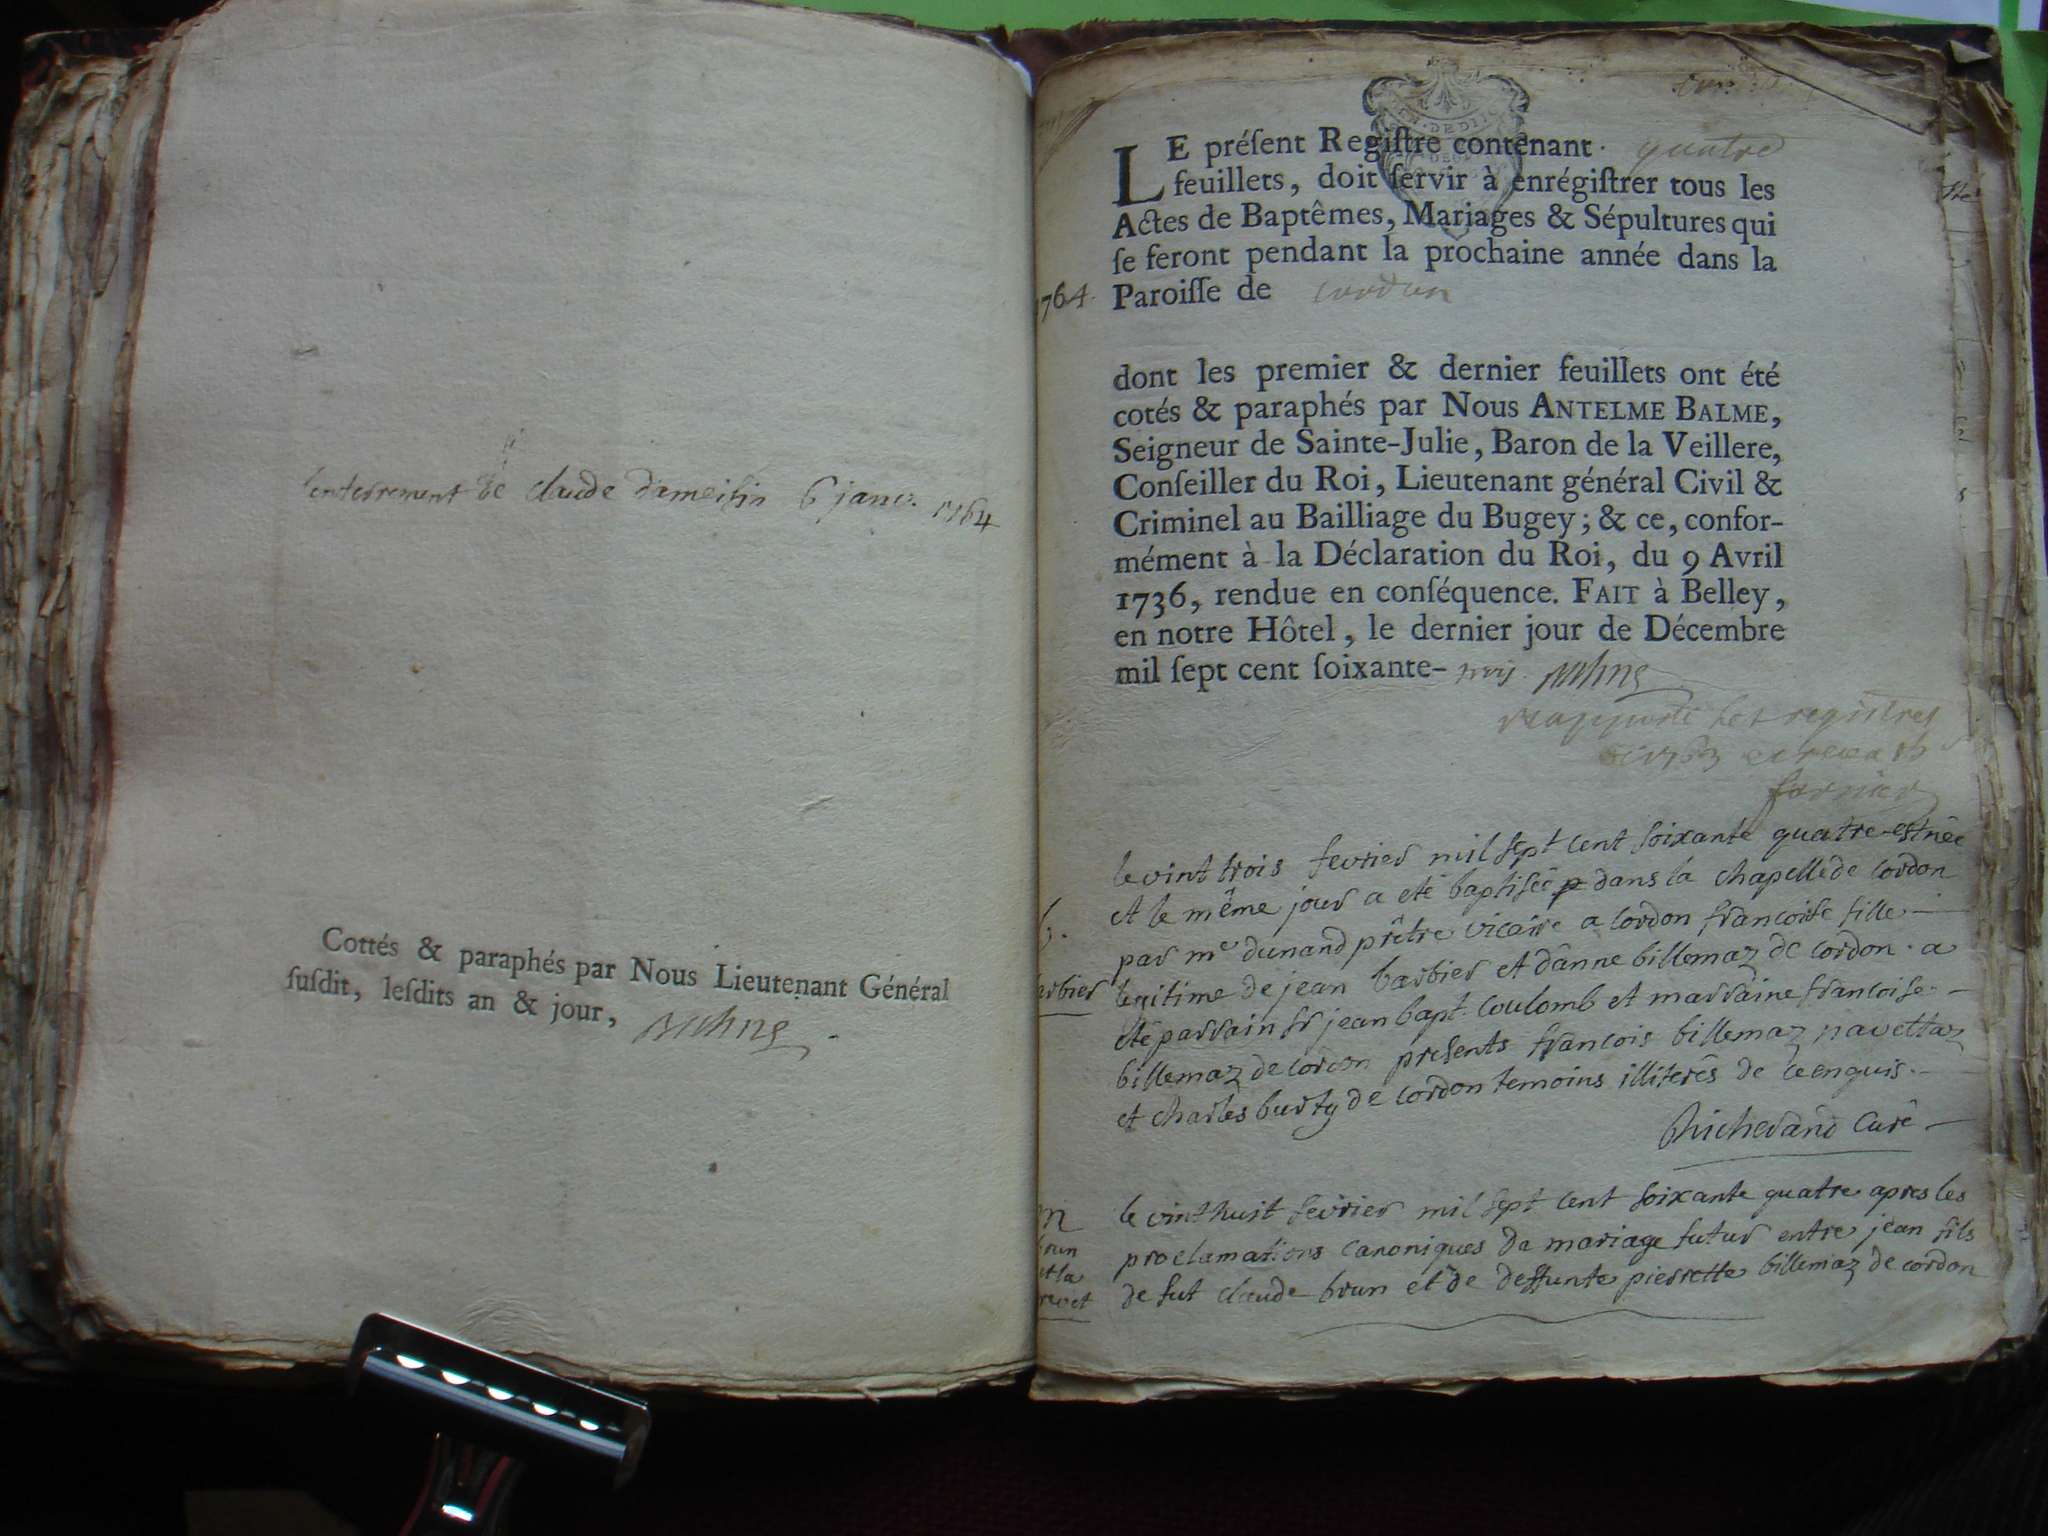 lenterrement de claude dameisin 6 janv. 1764
Cottés & paraphés par Nous Lieutenant Général
ſuſdit, leſdits an & jour,
quatre
LE préſent Regiſtre contenant
feuillets, doit ſervir à enrégiſtrer tous les
Actes de Baptêmes, Mariages & Sépultures qui
ſe feront pendant la prochaine année dans la
1764. Paroiſſe de cordon
dont les premier & dernier feuillets ont été
cotés & paraphés par Nous ANTELME BALME,
Seigneur de Sainte-Julie, Baron de la Veillere,
Conſeiller du Roi, Lieutenant général Civil &
Criminel au Bailliage du Bugey ; & ce, confor-
mément à la Déclaration du Roi, du 9 Avril
1736, rendue en conſéquence. FAIT à Belley,
en notre Hôtel, le dernier jour de Décembre
mil ſept cent ſoixante-trois
les registres
le vint trois fevrier mil sept cent soixante quatre est née
et le même jour a eté baptisée dans la chapelle de cordon
par me dunand prêtre vicaire a cordon francoise fille
legitime de jean barbier et danne billemaz de cordon. a
eté parrain sr jean bapt. coulomb et marraine francoise
billemaz de cordon presents francois billemaz navettaz
et charles burty de cordon temoins illiterés de ce enquis.
Richerand Curé
le vint huit fevrier mil sept cent soixante quatre apres les
proclamations canoniques de mariage futur entre jean fils
de fut claude brun et de deffunte pierrette billemaz de cordon